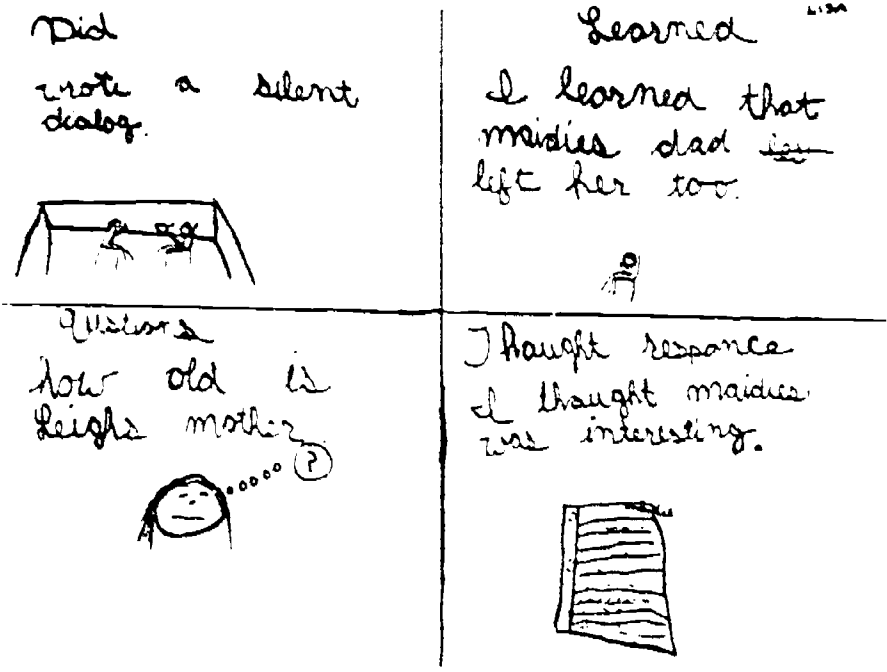 Did
wrote a silent
dialog.
Learned
LISA
I learned that
maidies dad
left her too.
Qustions
how old is
Leighs mother
?
Thaught responce
I thaught maidies
was interesting.